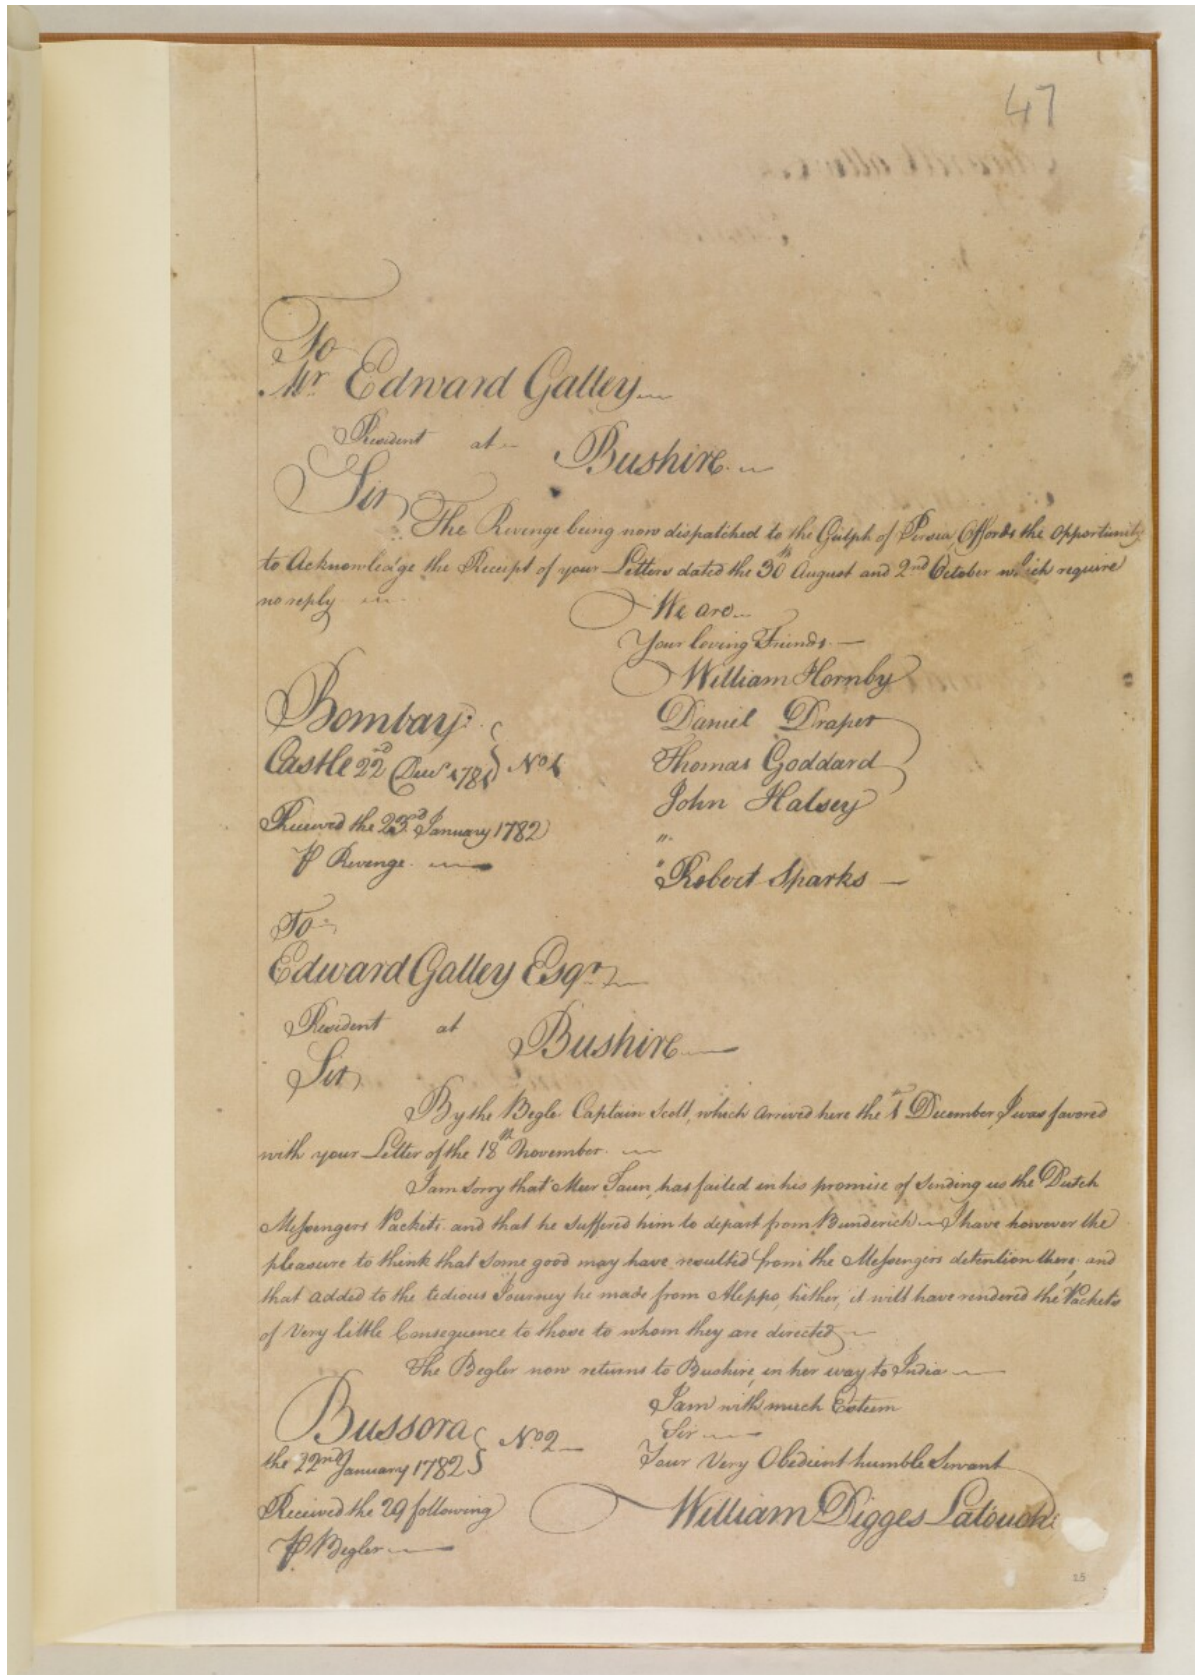 47
To
Mr. Edward Galley
Resident at Bushire
Sir
The Revenge being now dispatched to the Gulph of Persia, Affords the opportunity
to Acknowledge the Receipt of your Letters dated the 30th August and 2nd October which require
no reply
We are
Your loving Friends
William Hornby
Daniel Draper
Thomas Goddard
John Halsey
"
" Robert Sparks
Bombay
Castle 22nd Decr 1781 } No 1
Received the 23rd January 1782
P Revenge
To
Edward Galley Esqr
Resident at Bushire
Sir
By the Begle Captain Scott, which arrived here the 1st December, I was favored
with your Letter of the 18th November.
I am sorry that Meer Saun, has failed in his promise of sending us the Dutch
Messengers Packets and that he suffered him to depart from Bunderick I have however the
pleasure to think that some good may have resulted from the Messengers detention there, and
that added to the tedious Journey he made from Aleppo, hither, it will have rendered the Packets
of Very little Consequence to those to whom they are directed
The Begler now returns to Bushire, in her way to India
I am with much Esteem
Sir
Your Very Obedient humble Servant
William Digges Latouche
Bussora
the 22nd January 1782 } No. 2
Received the 29 following
P Begler
15